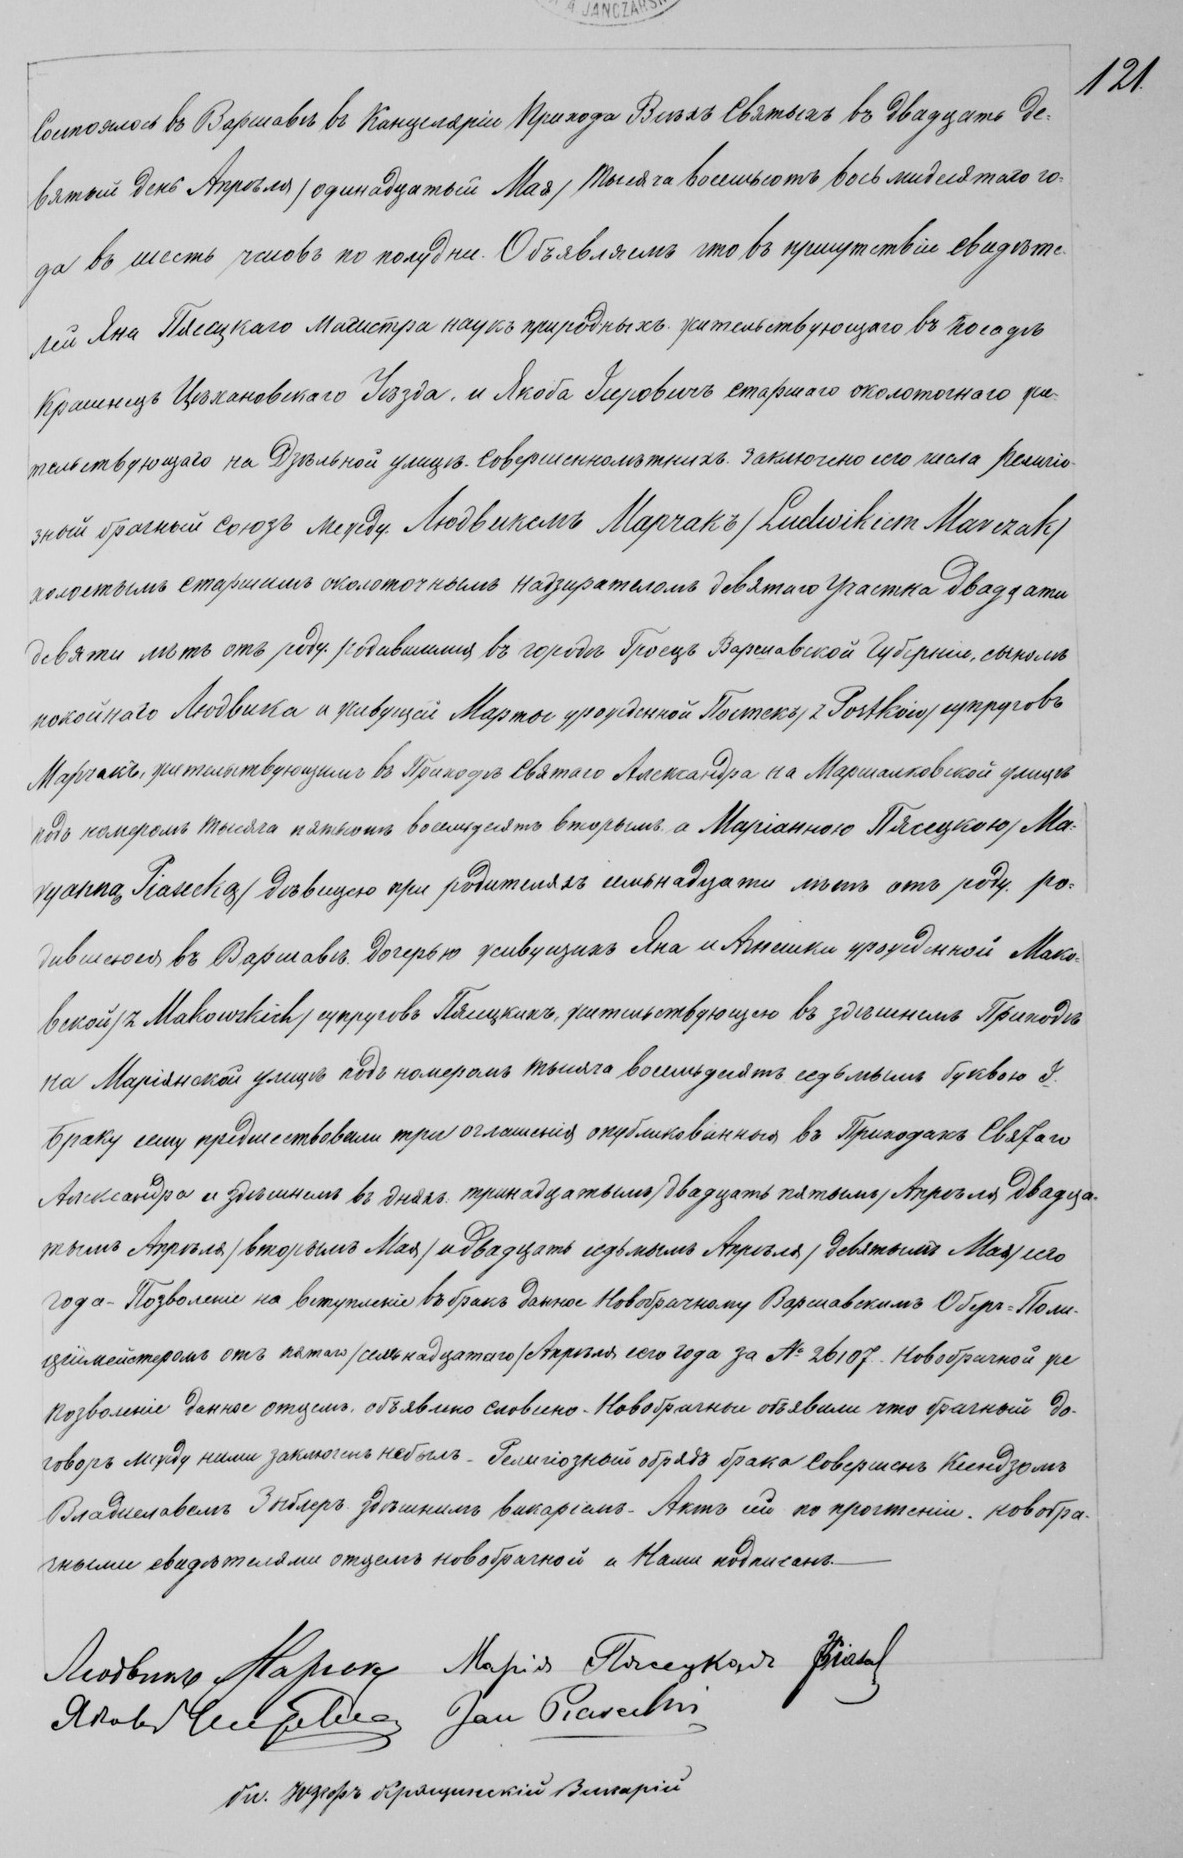 A JANCZARSK
121.
Состоялось въ Варшавѣ въ Канцеляріи Прихода Всѣхъ Святыхъ въ двадцать де-
вятый день Апрѣля / одинадцатый Мая / тысяча восемьсотъ восьмидесятаго го-
да въ шесть часовъ по полудни. Объявляемъ что въ присутствіи свидѣте-
лей Яна Пясецкаго Магистра наукъ природныхъ жительствующаго въ посадѣ
Красинецъ Цѣхановскаго Уѣзда, и Якоба старшаго околоточнаго жи-
тельствующаго на Дзѣльной улицѣ. Совершеннолѣтнихъ. Заключено сего числа религіо-
зный брачный союзъ между. Людвикомъ Марчакъ / Ludwikiem Marczak /
холостымъ старшимъ околоточнымъ надзирателомъ девятаго Участка двадцати
девяти лѣтъ отъ роду. родившимся въ городѣ Гроецъ Варшавской Губерніи, сыномъ
покойнаго Людвика и живущей Марты урожденной Постекъ / z Postków / супруговъ
Марчакъ, жительствующимъ въ Приходѣ Святаго Александра на Маршалковской улицѣ
подъ номеромъ тысяча пятьсотъ восемьдесятъ вторымъ. а Маріанною Пясецкою / Ma-
ryanną Piasecką / дѣвицею при родителяхъ семьнадцати лѣтъ отъ роду. ро-
дившеюся въ Варшавѣ. Дочерью живущихъ Яна и Агнешки урожденной Мако-
вской / z Makowskich / супруговъ Пясецкихъ, жительствующею въ здѣшнемъ Приходѣ
на Маріянской улицѣ подъ номеромъ тысяча восемьдесятъ седьмымъ буквою
Браку сему предшествовали три оглашенія опубликованныя въ Приходахъ Святаго
Александра и здѣшнемъ въ дняхъ: тринадцатымъ / двадцать пятымъ / Апрѣля двадца-
тымъ Апрѣля / вторымъ Мая / и двадцать седьмымъ Апрѣля / девятымъ Мая / сего
года - Позволеніе на вступленіе въ бракъ данное Новобрачному Варшавскимъ Оберъ=Поли-
ціймейстеромъ отъ пятаго / семьнадцатаго / Апрѣля сего года за № 26107. Новобрачной же
позволеніе данное отцемъ, объявлено словесно - Новобрачные объявили что брачный до-
говоръ между ними заключенъ небылъ - Религіозный обрядъ брака совершенъ Ксендзомъ
Владиславомъ здѣшнимъ викаріемъ - Актъ сей по прочтеніи. новобра-
чными свидѣтелями отцемъ новобрачной и Нами подписанъ.
Людвикъ Марчакъ Марія Пясецкая
Яковъ Jan Piasecki
Кс. Викарій